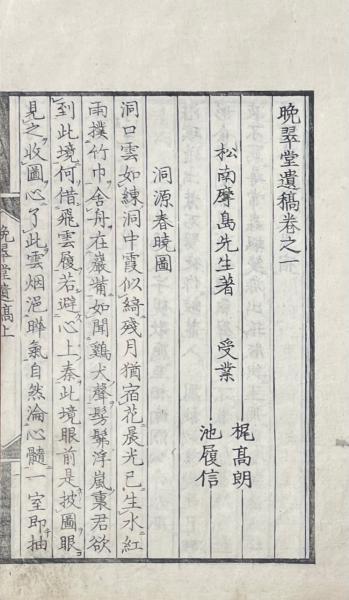 晩翠堂遺稿卷之一
松南摩島先生著 受業 梶髙朗
池履信
洞源春曉圖
洞口雲如練洞中霞似綺殘月猶宿花晨光已生水紅
雨撲竹巾舍舟在巖觜如聞鷄犬聲髣髴浮嵐裏君欲
到此境何借飛雲履若避心上秦此境眼前是披圖眼
見之收圖心了此雲烟浥聯氣自然淪心髓一室即抽
晩翠堂遺稿上